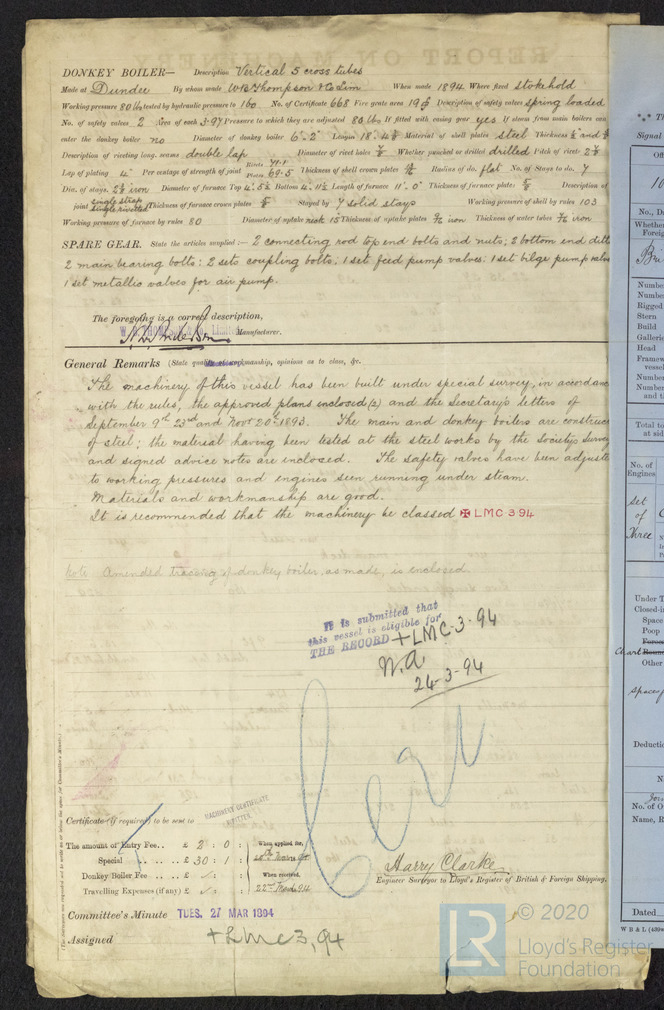 DONKEY BOILER— Description Vertical 5 cross tubes
Made at Dundee By whom made W.B. Thompson & Co Lim When made 1894 Where fixed Stokehold
Working pressure 80 lbs tested by hydraulic pressure to 160 No. of Certificate 668 Fire grate area 19 Description of safety valves spring loaded
No. of safety valves 2 Area of each 3.97 Pressure to which they are adjusted 80 lbs If fitted with easing gear yes If steam from main boilers can
enter the donkey boiler no Diameter of donkey boiler 6'-2" Length Material of shell plates steel Thickness
Description of riveting long. seams double lap Diameter of rivet holes 7/8 Whether punched or drilled drilled Pitch of rivets
Lap of plating 4" Per centage of strength of joint Rivets 71.1 Plates 69.5 Thickness of shell crown plates Radius of do. flat No. of Stays to do. 7
Dia. of stays. iron Diameter of furnace Top Bottom Length of furnace 11'.0" Thickness of furnace plates 5/8 Description of
joint single strap single riveted Thickness of furnace crown plates 5/8 Stayed by 7 solid stays Working pressure of shell by rules 103
Working pressure of furnace by rules 80 Diameter of uptake 15" Thickness of uptake plates iron Thickness of water tubes iron
SPARE GEAR. State the articles supplied:— 2 connecting rod top end bolts and nuts; 2 bottom end ditt
2 main bearing bolts: 2 sets coupling bolts: 1 set feed pump valves: 1 set bilge pump valve
1 set metallic valves for air pump.
The foregoing is a correct description,
Manufacturer.
General Remarks (State quality of workmanship, opinions as to class, &c.
The machinery of this vessel has been built under special survey, in acordanc
with the rules, the approved plans inclosed (2) and the Secretary's letters of
September 9th 23rd and Novr 20th 1893. The main and donkey boilers are construc
of steel; the material having been tested at the steel works by the Society Survey
and signed advice notes are inclosed. The safety valves have been adjuste
to working pressures and engines seen running under steam.
Materials and workmanship are good.
It is recommended that the machinery be classed ✠ LMC 3 94
Note Amended tracing of donkey boiler, as made, is enclosed
It is submitted that
this vessel is eligible for
THE RECORD + LMC-3-94
24-3-94
Certificate (if required) to be sent to
MACHINERY CERTIFICATE
WRITTEN
The amount of Entry Fee.. £ 2 : 0 : When applied for,
Special .. .. .. £ 30 : 1 :
Donkey Boiler Fee .. .. £ When received,
Travelling Expenses (if any) £ 22nd March 94
Harry Clarke
Engineer Surveyor to Lloyd's Register of British & Foreign Shipping.
Committee's Minute TUES. 27 MAR 1894
Assigned + LMC 3, 94
LR © 2020
Lloyd's Register
Foundation
Signal
No., Da
Whether
Foreig
Number
Number
Rigged
Stern
Build
Galleries
Head
Framew
vessel
Number
Number
and t
Total to
at sid
No. of
Engines
Set
of
Three
Under T
Closed-i
Space
Poop
Other
Deductio
No. of O
Name, R
Dated